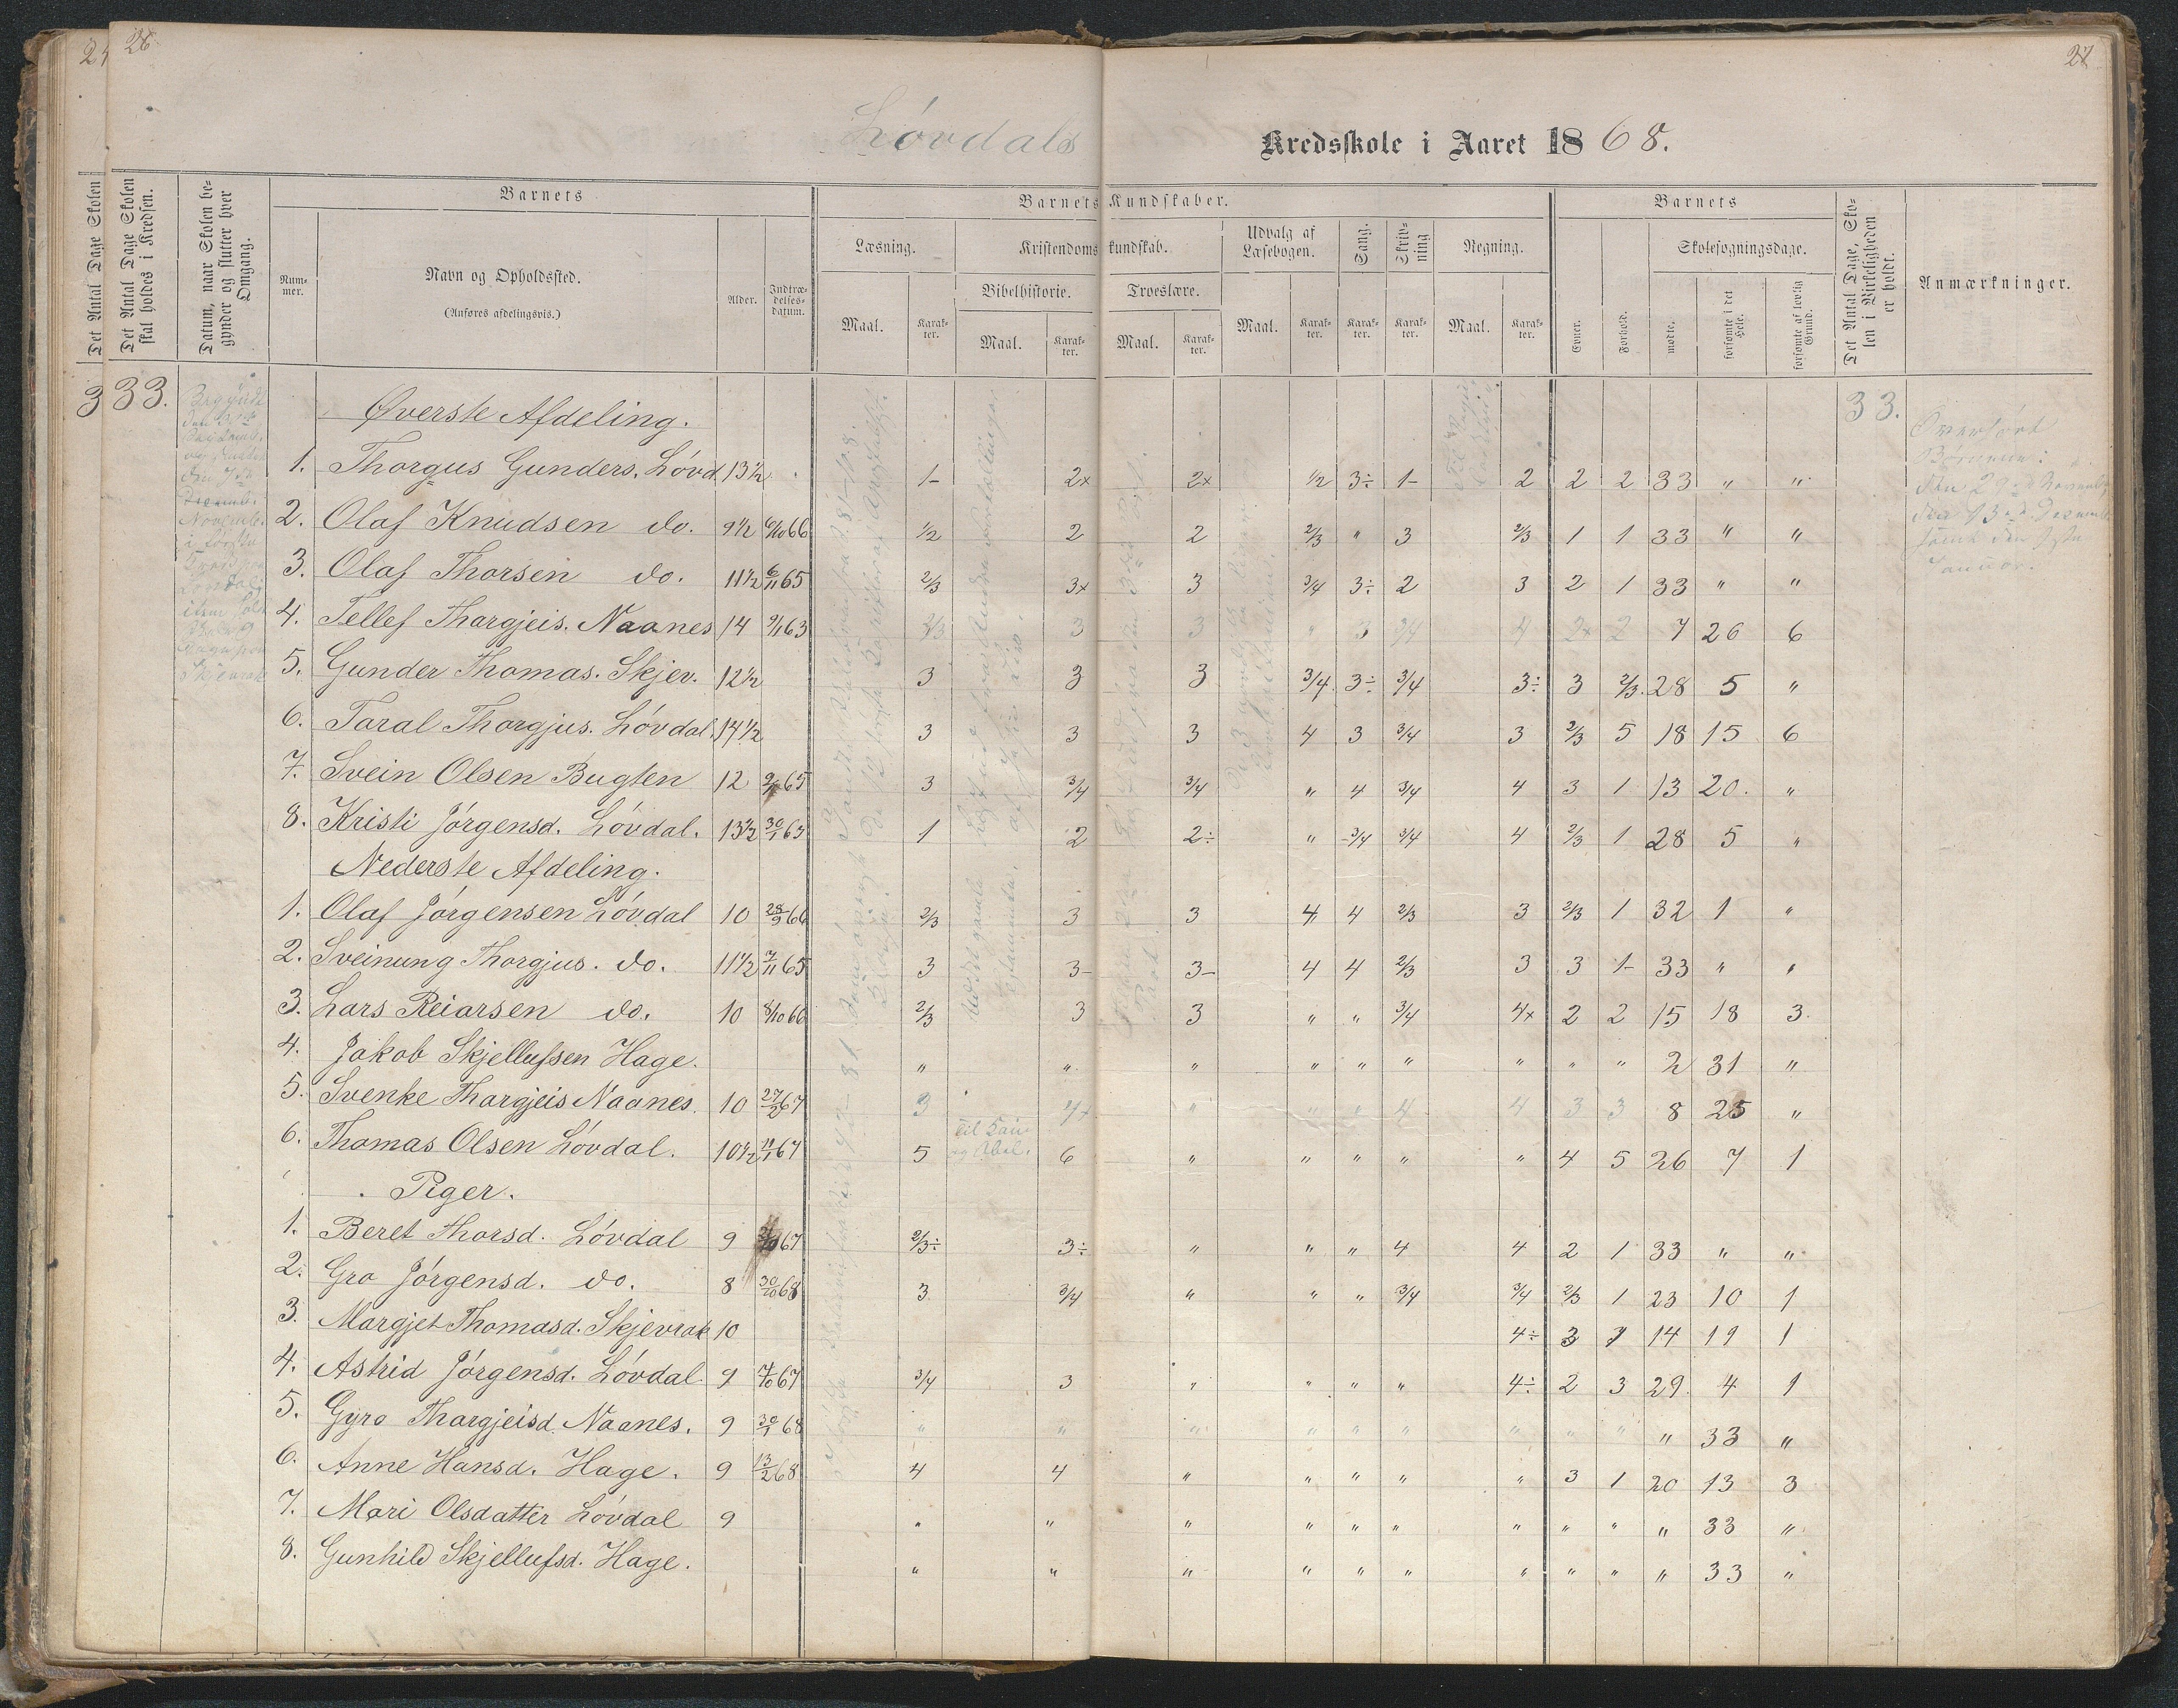 24 26 27
Lövdals Kredsskole i Aaret 1868.
Det Antal Dage Skolen
Det Antal Dage Skolen skal holdes i Kredsen.
Datum, naar Skolen begynder og slutter hver Omgang.
Barnets
Nummer.
Navn og Opholdssted.
(Anføres afdelingsvis.)
Alder.
Indtrædelsesdatum.
Barnets Kundskaber.
Læsning.
Maal.
Karakter.
Kristendomskundskab.
Bibelhistorie.
Maal.
Karakter.
Troeslære.
Maal.
Karakter.
Udvalg af Læsebogen.
Maal.
Karakter.
Sang.
Karakter.
Skrivning
Karakter.
Regning.
Maal.
Karakter.
Barnets
Evner.
Forhold.
Skolesøgningsdage.
mødte.
forsømte i det Hele.
forsømte af lovlig Grund.
Det Antal Dage, Skolen i Virkeligheden er holdt.
Anmærkninger.
3 33. Øverste Afdeling. 33.
1. Thorgus Gunders. Lövd. 13½ 1- 2x 2x ½ 3÷ 1- 2 2 2 33 " "
2. Olaf Knudsen do. 9½ 6/10 66 ½ 2 2 2/3 " 3 2/3 1 1 33 " "
3. Olaf Thorsen do. 11½ 6/11 65 2/3 3x 3 3/4 3÷ 2 3 2 1 33 " "
4. Tellef Thorgjeis. Naanes 14 9/1 63 2/3 3 3 " 3 3/4 4 2x 2 7 26 6
5. Gunder Thomas. Skjev. 12½ 3 3 3 3/4 3÷ 3/4 3÷ 3 2/3. 28 5 "
6. Taral Thorgjus. Lövdal. 14½ 3 3 3 4 3 3/4 3 2/3 5 18 15 6
7. Svein Olsen Bugten 12 65 3 3/4 3/4 " 4 3/4 4 3 1 13 20. "
8. Kristi Jörgensd. Lövdal. 13½ 30/1 63 1 2 2÷ " 3/4 3/4 4 2/3 1 28 5 "
Nederste Afdeling.
1. Olaf Jörgensen Lövdal 10 28/9 66 2/3 3 3 4 4 2/3 3 2/3 1 32 1 "
2. Sveinung Thorgjus. do. 11½ 7/11 65 3 3- 3- 4 4 2/3 3 3 1- 33 " "
3. Lars Reiarsen do. 10 8/10 66 2/3 3 3 " " 3/4 4x 2 2 15 18 3.
4. Jakob Skjellufsen Hage. " " " " " " " " " 2 31 "
5. Svenke Thorgjeis Naanes. 10 27/2 67 3 4x " " " 4 4 3 3 8 25 "
6. Thomas Olsen Lövdal. 10½ 11/1 67 5 Til Kain og Abel. 6 " " " " " 4 5 26 7 1
Piger.
1. Beret Thorsd. Lövdal 9 67 2/3÷ 3÷ " " " 4 4 2 1 33 " "
2. Gro Jörgensd. do. 8 30/10 68 3 3/4 " " " 3/4 3/4 2/3 1 23 10 1
3. Margjet Thomasd. Skjevrak 10 4÷ 3 14 19 1
4. Astrid Jörgensd. Lövdal. 9 7/10 67 3/4 3 " " " " 4÷ 2 3 29. 4 1
5. Gyro Thorgjeisd. Naanes. 9 30/1 68 " " " " " " " " " " 33 "
6. Anne Hansd. Hage. 9 13/2 68 4 4 " " " " " 3 1 20 13 3
7. Mari Olsdatter Lövdal 9 " " " " " " " " " " 33 "
8. Gunhild Skjellufsd. Hage. " " " " " " " " " " 33 "